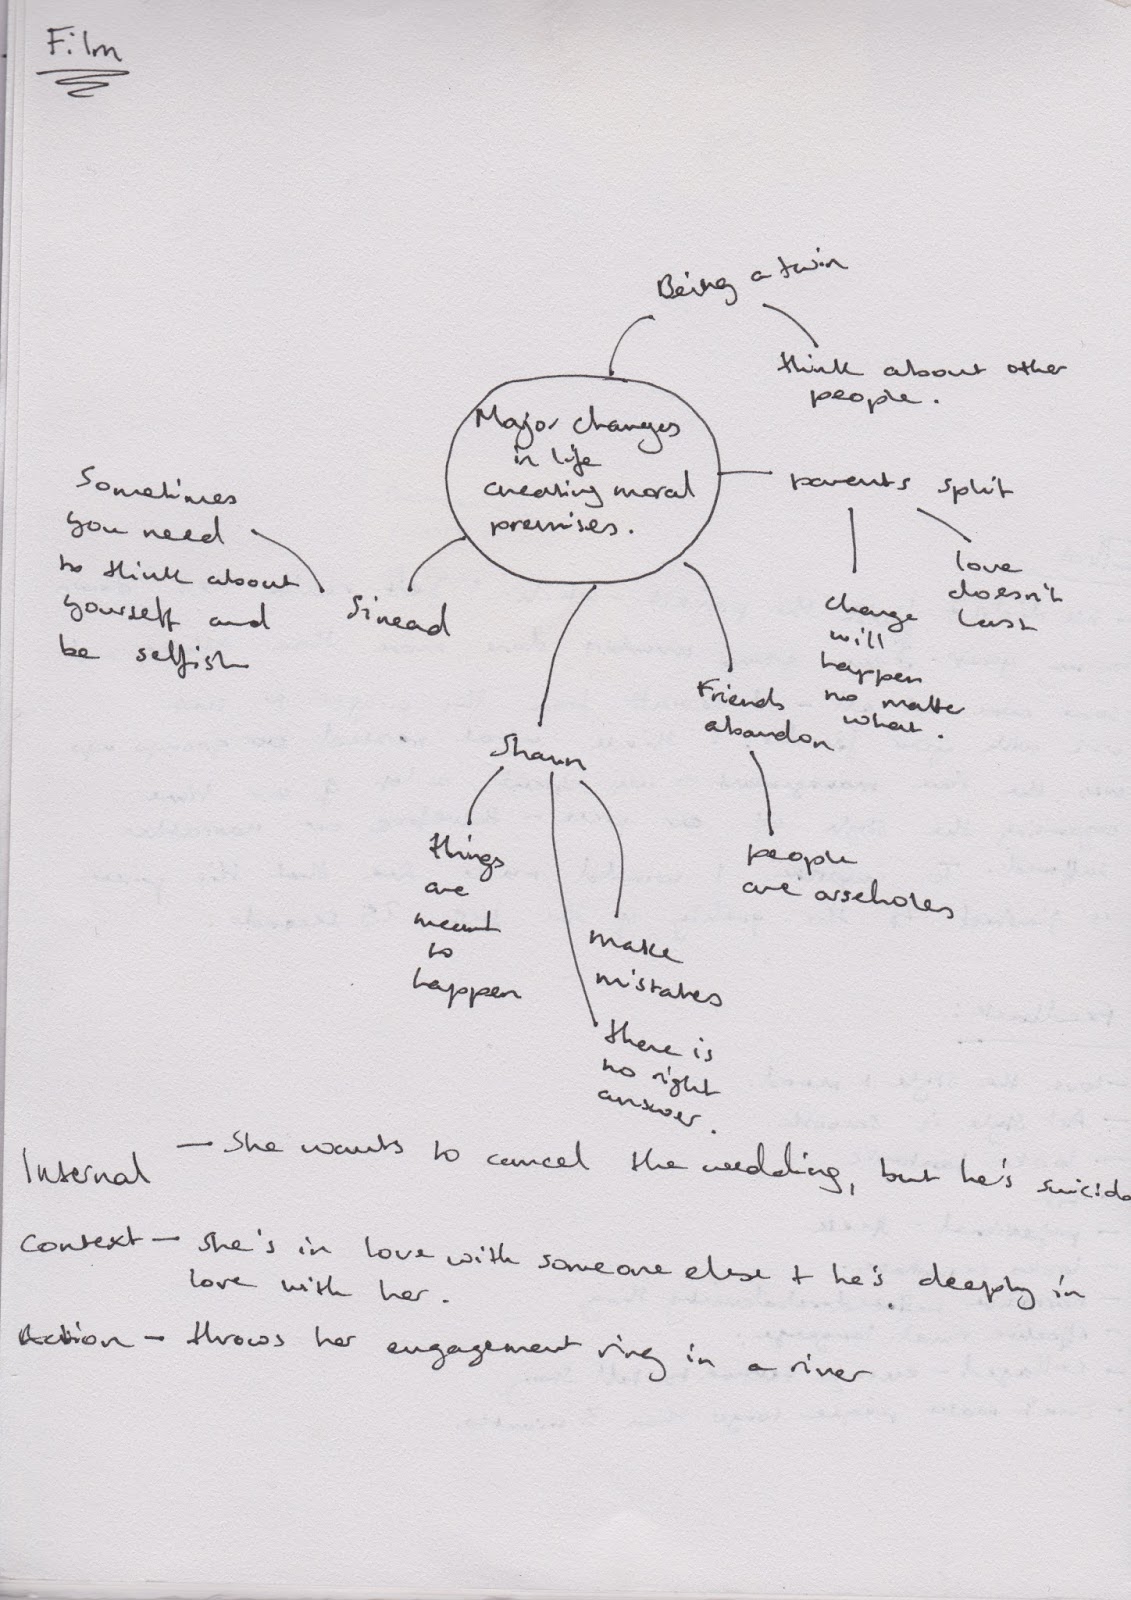 Film
Being a twin
think about other
people.
Major changes
in life
creating moral
premises.
parents split
love
doesn't
last
change
will
happen
no matter
what.
Sometimes
you need
to think about
yourself and
be selfish
Sinead
Friends
abandon
people
are arseholes
Shaun
things
are
meant
to
happen
make
mistakes
there is
no right
answer.
Internal — She wants to cancel the wedding, but he's suicida
Context — She's in love with someone else + he's deeply in
love with her.
Action — throws her engagement ring in a river